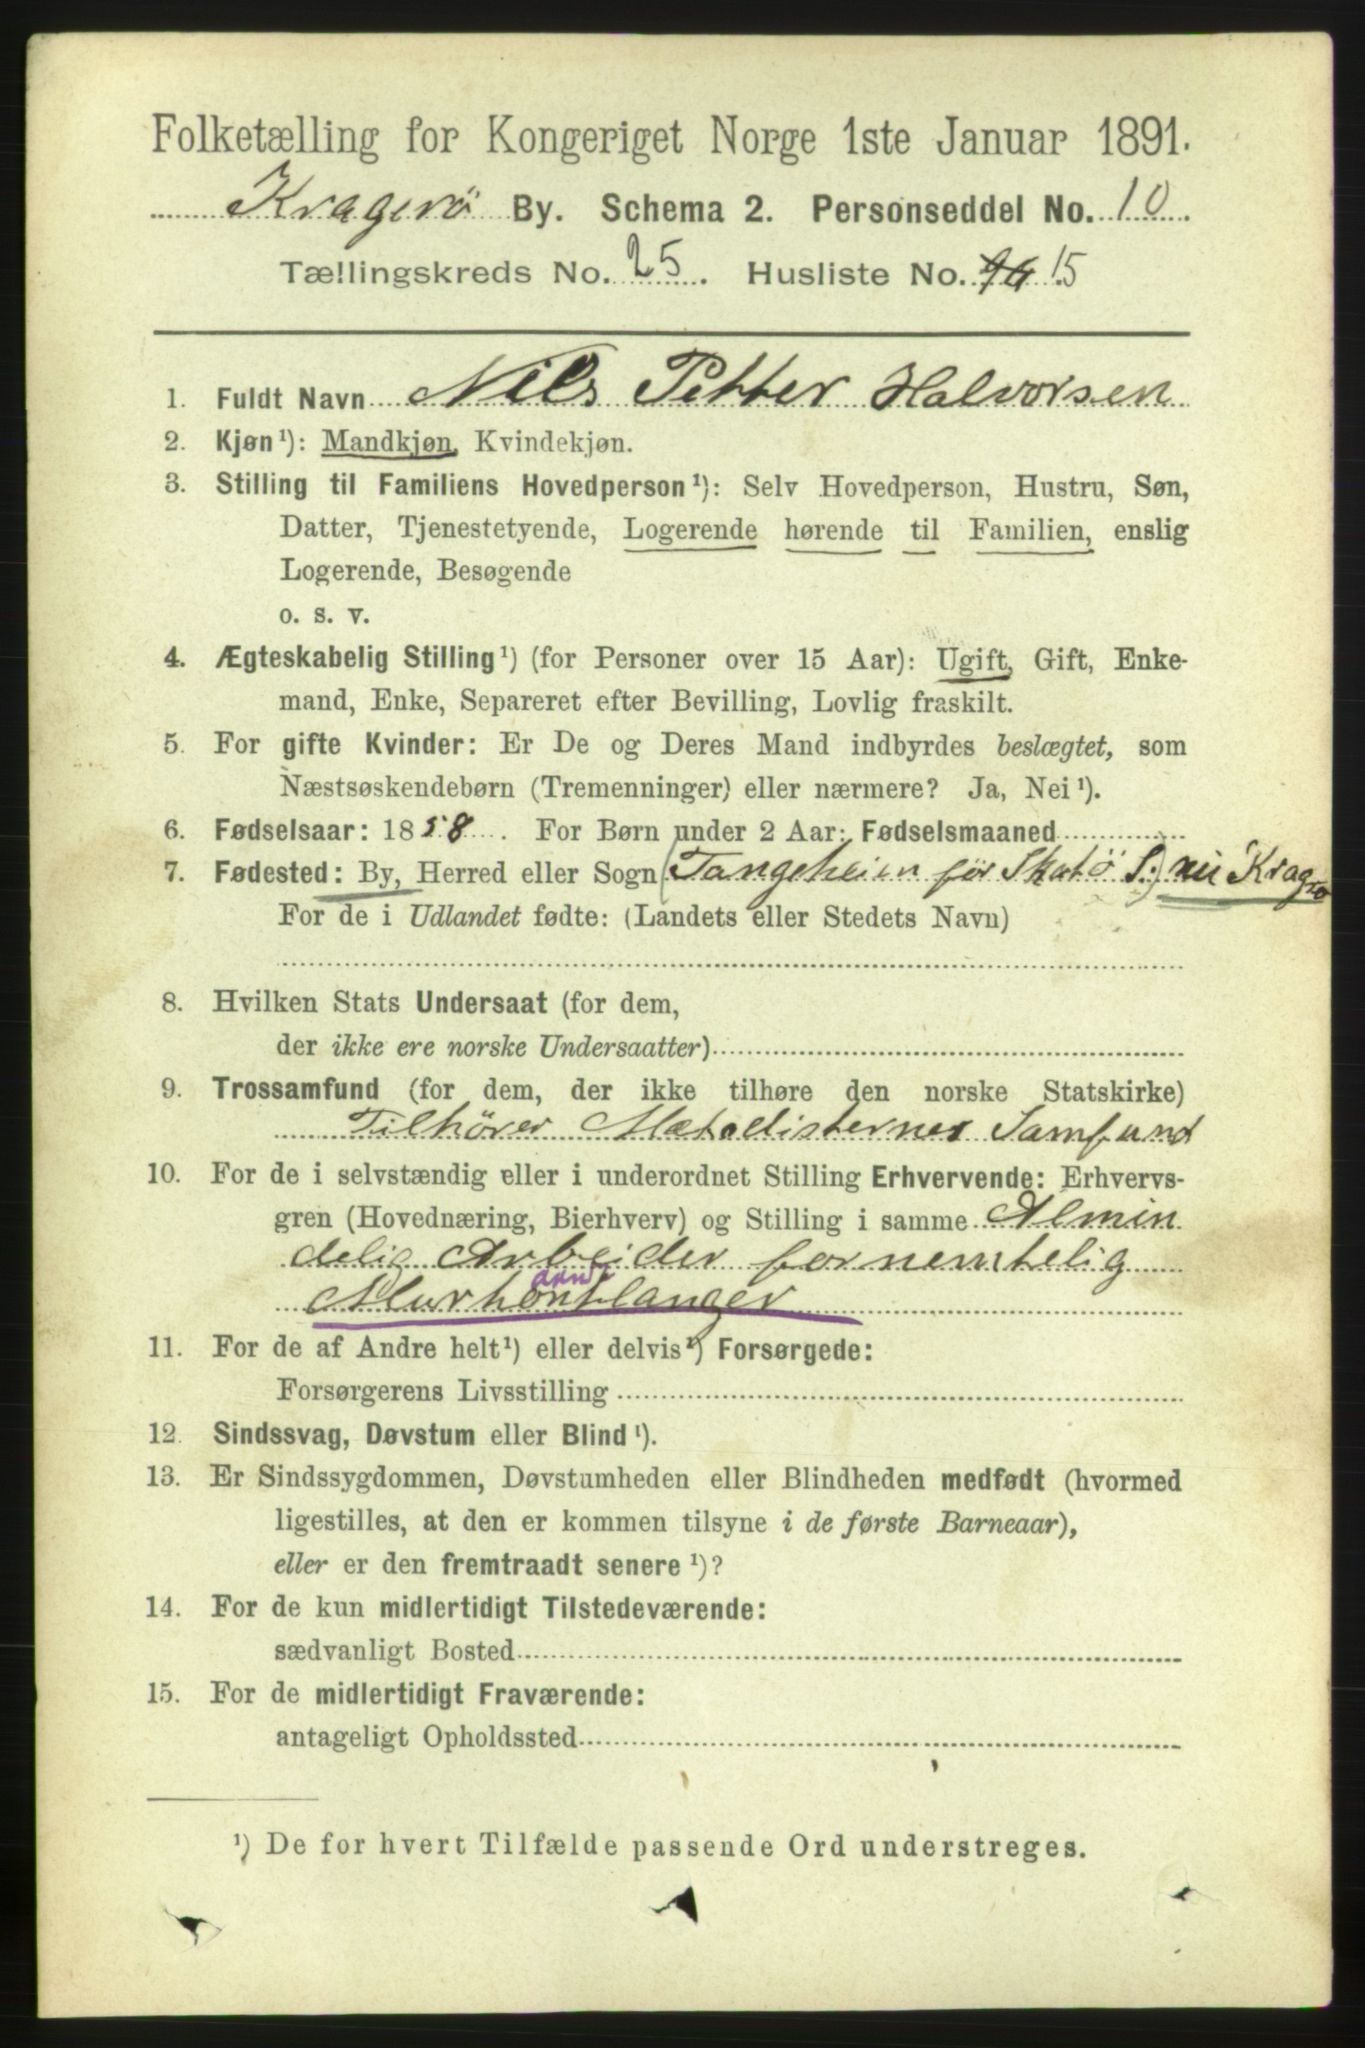 Folketælling for Kongeriget Norge 1ste Januar 1891.
Kragerö By. Schema 2. Personseddel No. 10
Tællingskreds No. 25. Husliste No. 15
1. Fuldt Navn Nils Petter Halvorsen
2. Kjøn¹): Mandkjøn, Kvindekjøn.
3. Stilling til Familiens Hovedperson¹): Selv Hovedperson, Hustru, Søn,
Datter, Tjenestetyende, Logerende hørende til Familien, enslig
Logerende, Besøgende
o. s. v.
4. Ægteskabelig Stilling¹) (for Personer over 15 Aar): Ugift, Gift, Enke-
mand, Enke, Separeret efter Bevilling, Lovlig fraskilt.
5. For gifte Kvinder: Er De og Deres Mand indbyrdes beslægtet, som
Næstsøskendebørn (Tremenninger) eller nærmere? Ja, Nei¹).
6. Fødselsaar: 1858. For Børn under 2 Aar: Fødselsmaaned
7. Fødested: By, Herred eller Sogn (Tangeheien för Skatö S.) nu Kragrø
For de i Udlandet fødte: (Landets eller Stedets Navn)
8. Hvilken Stats Undersaat (for dem,
der ikke ere norske Undersaatter)
9. Trossamfund (for dem, der ikke tilhøre den norske Statskirke)
Tilhörer Metodisternes Samfund
10. For de i selvstændig eller i underordnet Stilling Erhvervende: Erhvervs-
gren (Hovednæring, Bierhverv) og Stilling i samme Almin
delig Arbeider fornemtelig
Murhantlanger
11. For de af Andre helt¹) eller delvis¹) Forsørgede:
Forsørgerens Livsstilling
12. Sindssvag, Døvstum eller Blind¹).
13. Er Sindssygdommen, Døvstumheden eller Blindheden medfødt (hvormed
ligestilles, at den er kommen tilsyne i de første Barneaar),
eller er den fremtraadt senere¹)?
14. For de kun midlertidigt Tilstedeværende:
sædvanligt Bosted
15. For de midlertidigt Fraværende:
antageligt Opholdssted
¹) De for hvert Tilfælde passende Ord understreges.